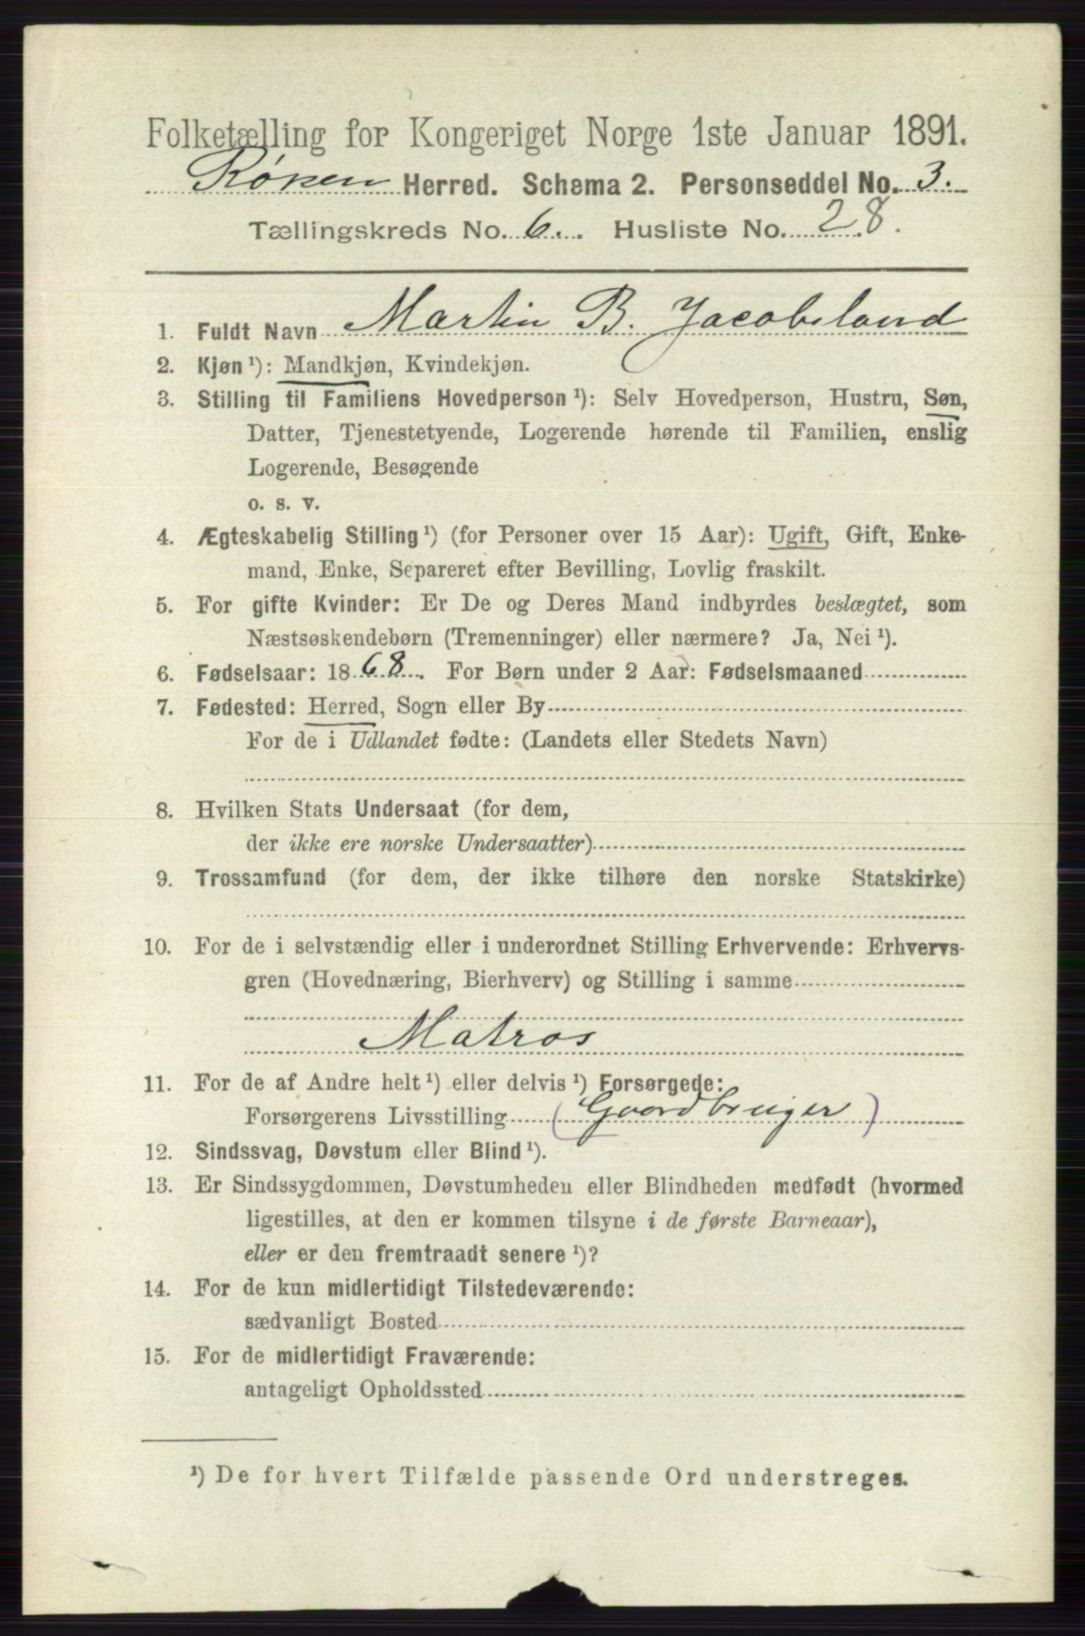 Folketælling for Kongeriget Norge 1ste Januar 1891.
Røken Herred. Schema 2. Personseddel No. 3.
Tællingskreds No. 6. Husliste No. 28.
1. Fuldt Navn Martin B. Jacobsland
2. Kjøn ¹): Mandkjøn, Kvindekjøn.
3. Stilling til Familiens Hovedperson ¹): Selv Hovedperson, Hustru, Søn,
Datter, Tjenestetyende, Logerende hørende til Familien, enslig
Logerende, Besøgende
o. s. v.
4. Ægteskabelig Stilling ¹) (for Personer over 15 Aar): Ugift, Gift, Enke-
mand, Enke, Separeret efter Bevilling, Lovlig fraskilt.
5. For gifte Kvinder: Er De og Deres Mand indbyrdes beslægtet, som
Næstsøskendebørn (Tremenninger) eller nærmere? Ja, Nei ¹).
6. Fødselsaar: 1868. For Børn under 2 Aar: Fødselsmaaned
7. Fødested: Herred, Sogn eller By
For de i Udlandet fødte: (Landets eller Stedets Navn)
8. Hvilken Stats Undersaat (for dem,
der ikke ere norske Undersaatter)
9. Trossamfund (for dem, der ikke tilhøre den norske Statskirke)
10. For de i selvstændig eller i underordnet Stilling Erhvervende: Erhvervs-
gren (Hovednæring, Bierhverv) og Stilling i samme
Matros
11. For de af Andre helt ¹) eller delvis ¹) Forsørgede:
Forsørgerens Livsstilling (Gaardbruger)
12. Sindssvag, Døvstum eller Blind ¹).
13. Er Sindssygdommen, Døvstumheden eller Blindheden medfødt (hvormed
ligestilles, at den er kommen tilsyne i de første Barneaar),
eller er den fremtraadt senere ¹)?
14. For de kun midlertidigt Tilstedeværende:
sædvanligt Bosted
15. For de midlertidigt Fraværende:
antageligt Opholdssted
¹) De for hvert Tilfælde passende Ord understreges.